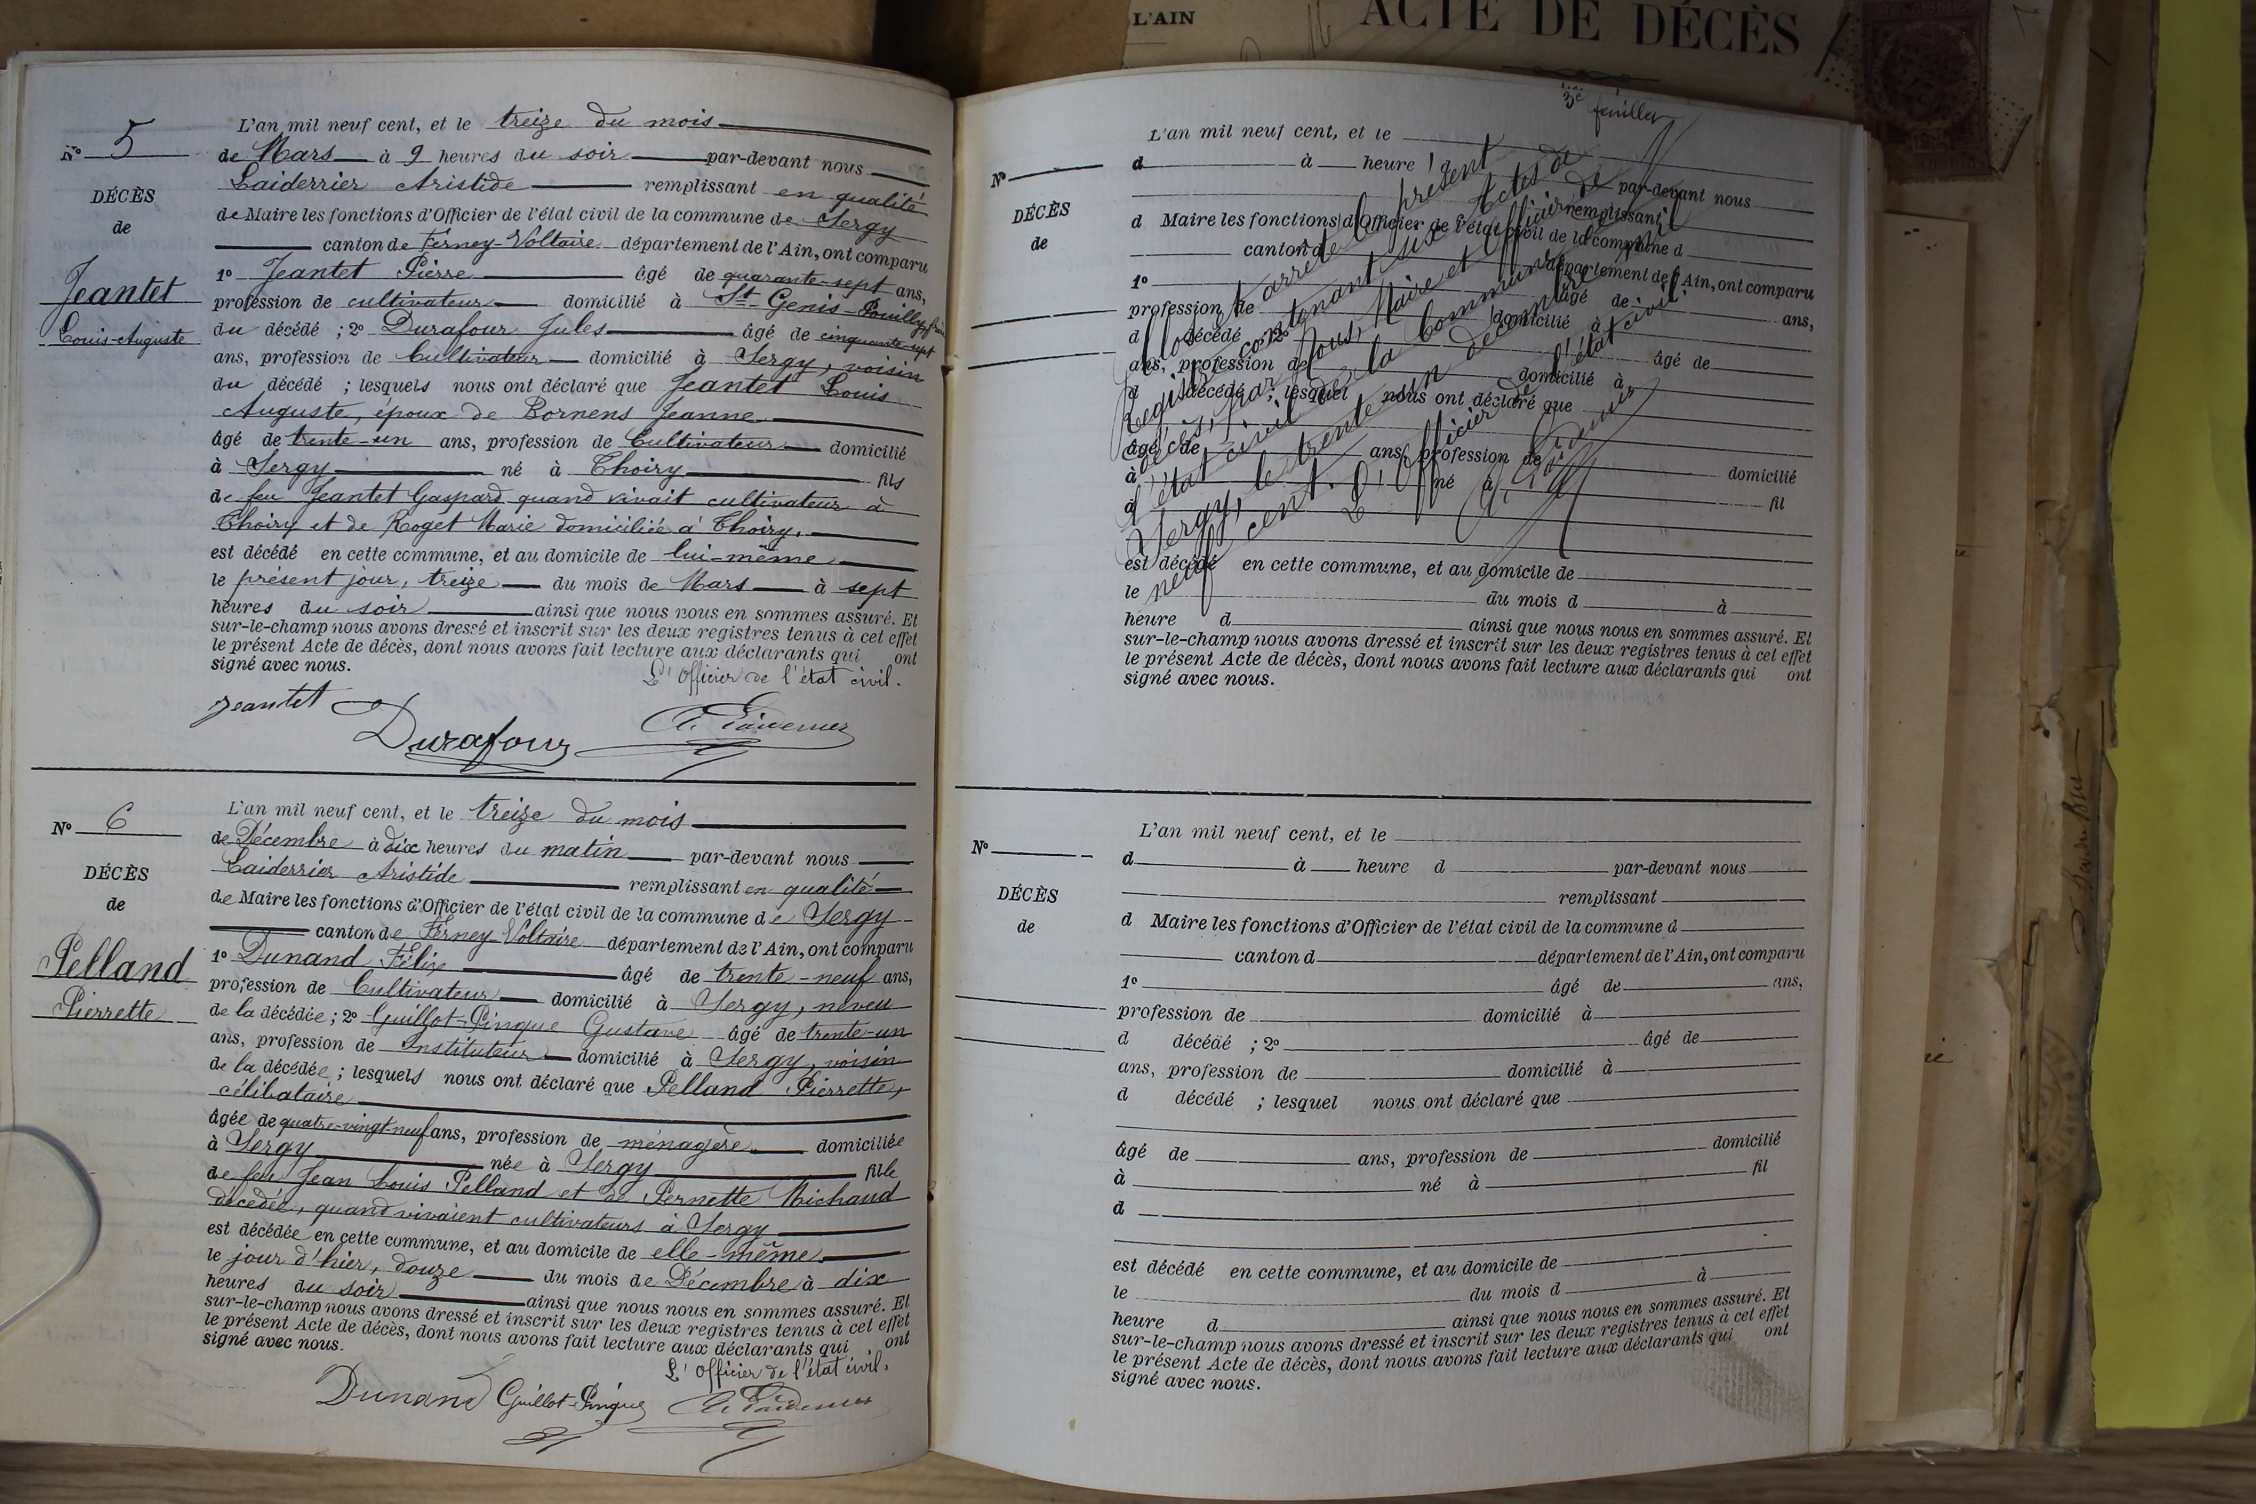 L'AIN
ACTE DE DÉCÈS
Nº 5
DÉCÈS
de
Jeantet
Louis-Auguste
L'an mil neuf cent, et le treize du mois
de Mars à 9 heures du soir par-devant nous
Laiderrier Aristide remplissant en qualité
de Maire les fonctions d'Officier de l'état civil de la commune de Sergy
canton de Ferney-Voltaire département de l'Ain, ont comparu
1º Jeantet Pierre âgé de quarante-sept ans,
profession de cultivateur domicilié à St Genis-Pouilly, frère
du décédé ; 2º Durafour Jules âgé de cinquante-sept
ans, profession de Cultivateur domicilié à Sergy, voisin
du décédé ; lesquels nous ont déclaré que Jeantet Louis
Auguste, époux de Bornens Jeanne
âgé de trente-un ans, profession de Cultivateur domicilié
à Sergy né à Thoiry fils
de feu Jeantet Gaspard quand vivait cultivateur à
Thoiry et de Roget Marie domiciliée à Thoiry,
est décédé en cette commune, et au domicile de lui-même
le présent jour, treize du mois de Mars à sept
heures du soir ainsi que nous nous en sommes assuré. Et
sur-le-champ nous avons dressé et inscrit sur les deux registres tenus à cet effet
le présent Acte de décès, dont nous avons fait lecture aux déclarants qui ont
signé avec nous.
L'Officier de l'état civil.
Jeantet
Durafour
A. Laiderrier
Nº 6
DÉCÈS
de
Pelland
Pierrette
L'an mil neuf cent, et le treize du mois
de Décembre à dix heures du matin par-devant nous
Laiderrier Aristide remplissant en qualité
de Maire les fonctions d'Officier de l'état civil de la commune de Sergy
canton de Ferney-Voltaire département de l'Ain, ont comparu
1º Dunand Félix âgé de trente-neuf ans,
profession de Cultivateur domicilié à Sergy, neveu
de la décédée ; 2º Guillot-Pingue Gustave âgé de trente-un
ans, profession de Instituteur domicilié à Sergy, voisin
de la décédée ; lesquels nous ont déclaré que Pelland Pierrette,
célibataire
âgée de quatre-vingt-neuf ans, profession de ménagère domiciliée
à Sergy née à Sergy fille
de feu Jean Louis Pelland et de Pernette Michaud
décédée, quand vivaient cultivateurs à Sergy
est décédée en cette commune, et au domicile de elle-même
le jour d'hier, douze du mois de Décembre à dix
heures du soir ainsi que nous nous en sommes assuré. Et
sur-le-champ nous avons dressé et inscrit sur les deux registres tenus à cet effet
le présent Acte de décès, dont nous avons fait lecture aux déclarants qui ont
signé avec nous.
L'Officier de l'état civil.
Dunand Guillot-Pingue A. Laiderrier
3e feuillet
Nº
DÉCÈS
de
L'an mil neuf cent, et le
d à heure par-devant nous
remplissant
d Maire les fonctions d'Officier de l'état civil de la commune d
canton d département de l'Ain, ont comparu
1º âgé de ans,
profession de domicilié à
d décédé ; 2º âgé de
ans, profession de domicilié à
d décédé ; lesquel nous ont déclaré que
âgé de ans, profession de domicilié
à né à fil
d
est décédé en cette commune, et au domicile de
le du mois d à
heure d ainsi que nous nous en sommes assuré. Et
sur-le-champ nous avons dressé et inscrit sur les deux registres tenus à cet effet
le présent Acte de décès, dont nous avons fait lecture aux déclarants qui ont
signé avec nous.
Clos et arrêté le présent
Registre contenant six Actes de
décès, par Nous, Maire et Officier de
l'état civil de la Commune de
Sergy, le trente-un décembre mil
neuf cent. L'Officier de l'état civil.
A. Laiderrier
Nº
DÉCÈS
de
L'an mil neuf cent, et le
d à heure d par-devant nous
remplissant
d Maire les fonctions d'Officier de l'état civil de la commune d
canton d département de l'Ain, ont comparu
1º âgé de ans,
profession de domicilié à
d décédé ; 2º âgé de
ans, profession de domicilié à
d décédé ; lesquel nous ont déclaré que
âgé de ans, profession de domicilié
à né à fil
d
est décédé en cette commune, et au domicile de
le du mois d à
heure d ainsi que nous nous en sommes assuré. Et
sur-le-champ nous avons dressé et inscrit sur les deux registres tenus à cet effet
le présent Acte de décès, dont nous avons fait lecture aux déclarants qui ont
signé avec nous.